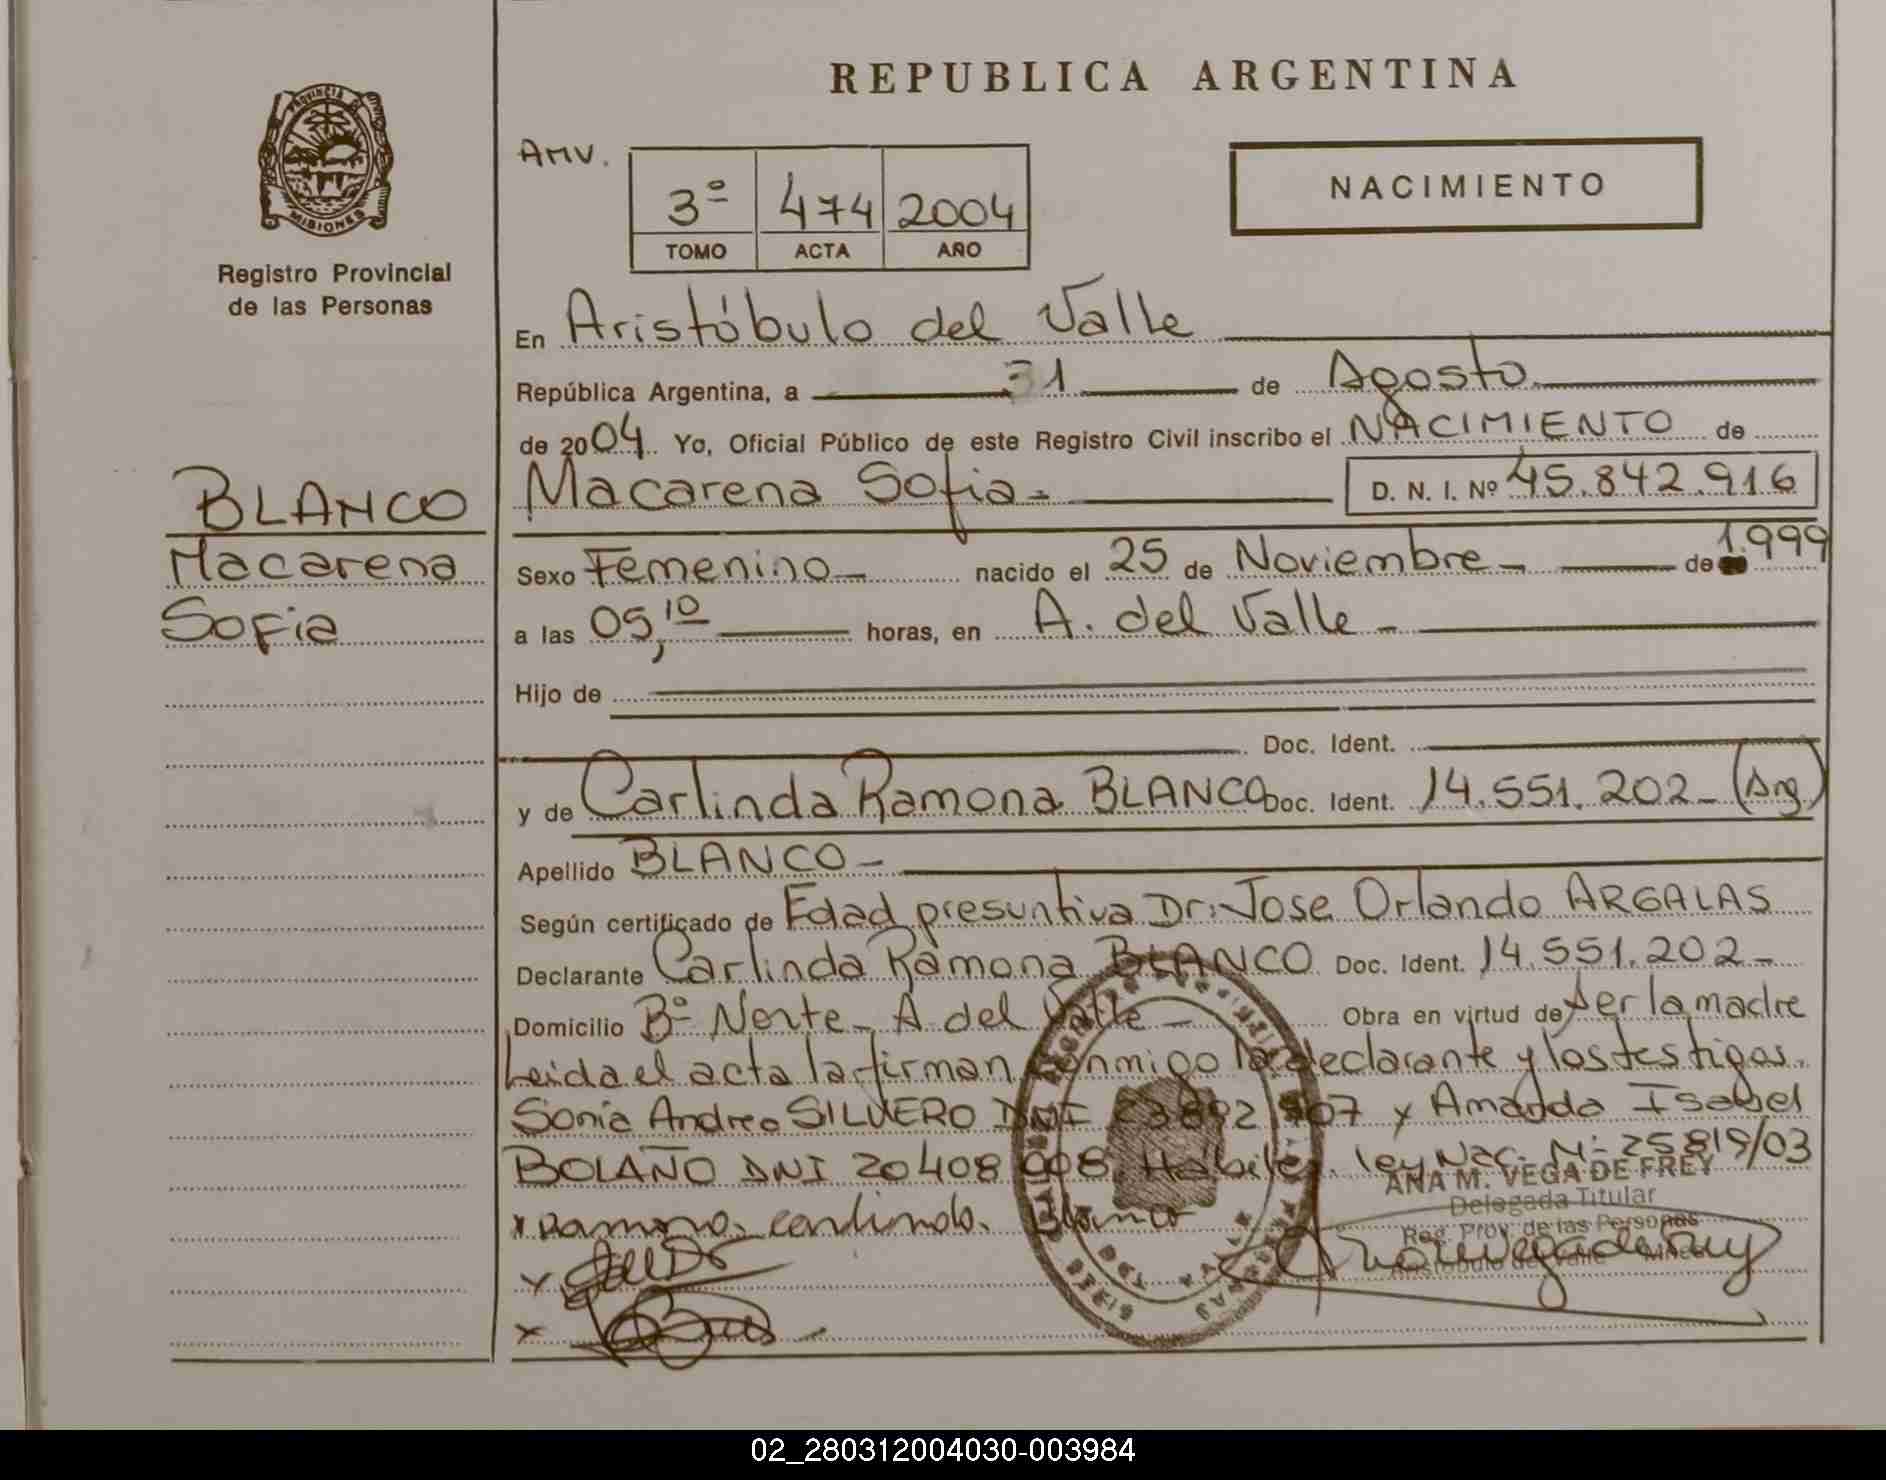 REPUBLICA ARGENTINA
PROVINCIA DE
MISIONES
Registro Provincial
de las Personas
AMV.
3º 474 2004
TOMO ACTA AÑO
NACIMIENTO
En Aristóbulo del Valle
República Argentina, a 31 de Agosto
de 2004. Yo, Oficial Público de este Registro Civil inscribo el NACIMIENTO de
BLANCO
Macarena
Sofia
Macarena Sofia - D. N. I. Nº 45.842.916
Sexo Femenino - nacido el 25 de Noviembre - de 1.999
a las 05,10 horas, en A. del Valle -
Hijo de
Doc. Ident.
y de Carlinda Ramona BLANCO Doc. Ident. 14.551.202 - (Arg.)
Apellido BLANCO -
Según certificado de Edad presuntiva Dr: Jose Orlando ARGALAS
Declarante Carlinda Ramona BLANCO Doc. Ident. 14.551.202 -
Domicilio Bº Norte - A del Valle - Obra en virtud de ser la madre
Leida el acta la firman conmigo la declarante y los testigos.
Sonia Andrea SILVERO DNI y Amanda Isabel
BOLAÑO DNI 20408 Habiles. ley Nac. Nº 25819/03
ANA M. VEGA DE FREY
Delegada Titular
Reg. Prov. de las Personas
Aristóbulo del Valle
x Ramona carlinda. Blanco
x
x
02_280312004030-003984